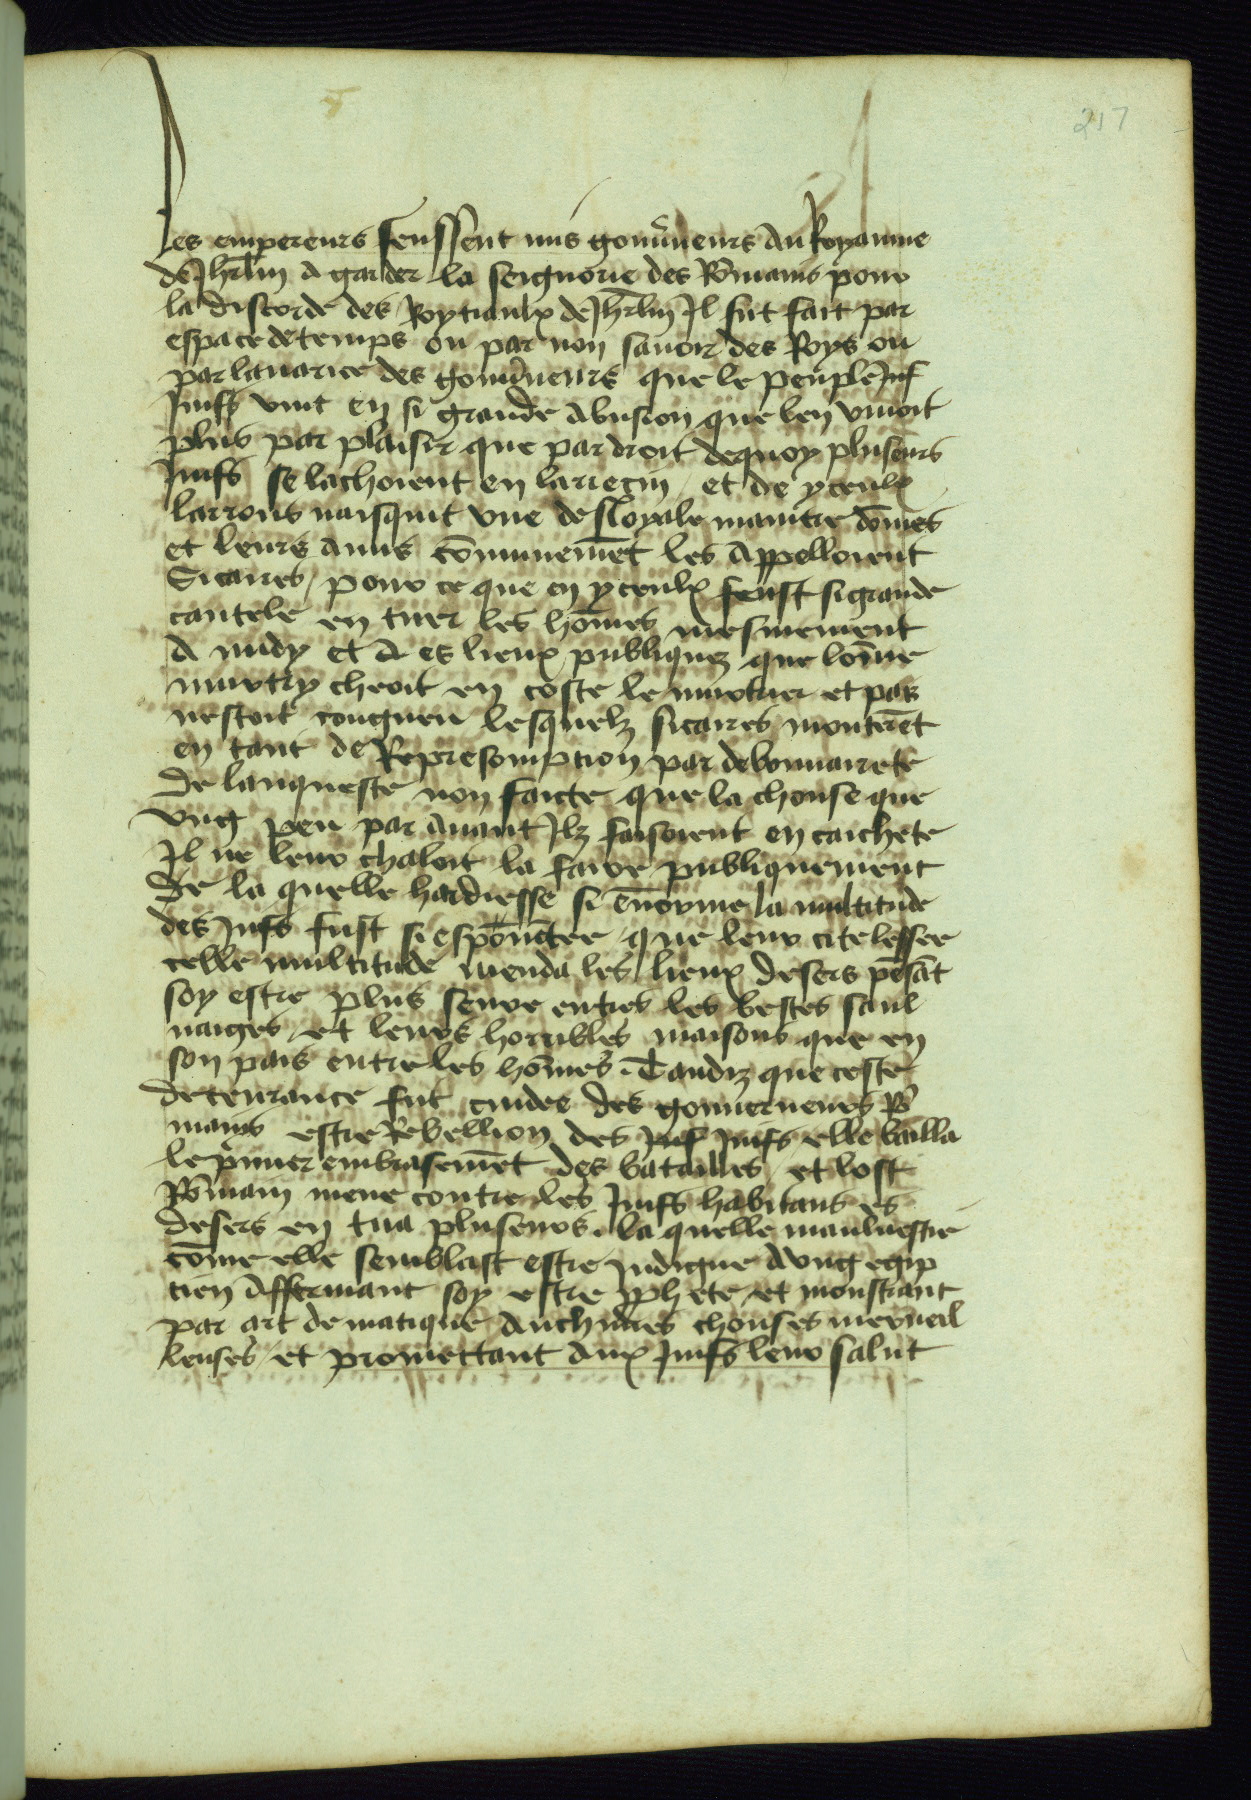 217
les empereurs feussent mis gouũneurs Au Royaume
de Jhrl̃m A garder la seignorie des Rõmains pour
la discorde des Roytiaulx de Jhrl̃m Il fut fait par
espace de temps ou par non sauoir des Roys ou
par lauarice des gouũneurs que le peuple Juif
Juifs vint en si grande Abusion que len viuoit
plus par plaisir que par droit dequoy pluseurs
Juifs se lachoient en larrecin / et de yceulx
larrons nasquit vne desloyale maniere dõmes
et leurs amis cõmunemẽt les Appelloient
Sicaires / pour ce que en yceulx feust si grande
cautele en tuer les hõmes mesmement
A midy et A es lieux publiques que lõme
murtry cheoit en coste le murtrier et pas
nestoit congneu lesquelz sicaires monterẽt
en tant de Represomption par debonnairete
de lanqueste non faicte que la chouse que
vng peu par Auant Ilz faisoient en caichete
Il ne leur chaloit la faire publiquement
de la quelle hardiesse si Enorme la multitude
des Juifs fust si espouentee que leur cite lessee
celle multitude menda les lieux desers pẽsãt
soy estre plus seure entres les bestes saul
uaiges / et leurs horribles maisons que en
son pais entre les hõmes . Tandiz que ceste
detenrance fut cuidee des gouuerneurs Rõ
mains estre Rebellion des Juif Juifs elle bailla
le p̃mier embrasemẽt des batailles / et lost
Rõmain mene contre les Juifs habitans es
desers en tua pluseurs . la quelle mauluestie
cõme elle semblast estre indigne A vng egip
tien Affermant soy estre p̃phete / et monstrant
par art de matique Auchunes chouses merueil
leuses / et promettant Aux Juifs leur salut